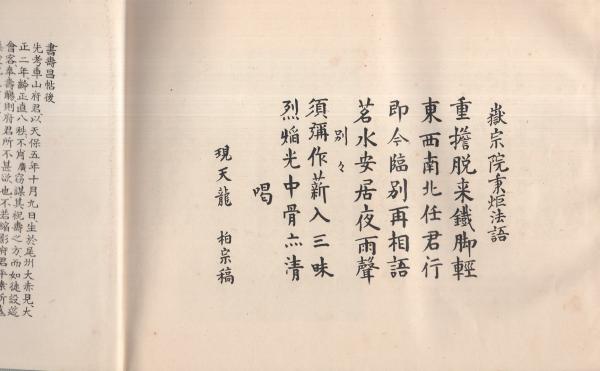 嶽宗院秉炬法語
重擔脱来鐵脚輕
東西南北任君行
即今臨別再相語
茗水安居夜雨聲
別々
須彌作薪入三昧
烈焔光中骨亦清
喝
現天龍 柏宗稿
書壽昌帖後
先考車山府君以天保五年十月九日生於尾州大赤見大
正二年齡正直八秩不肖廣窃謀其祝壽之方而如徒設筵
會客奉壽觴則府君所不甚欲也不若縮影府君平素所